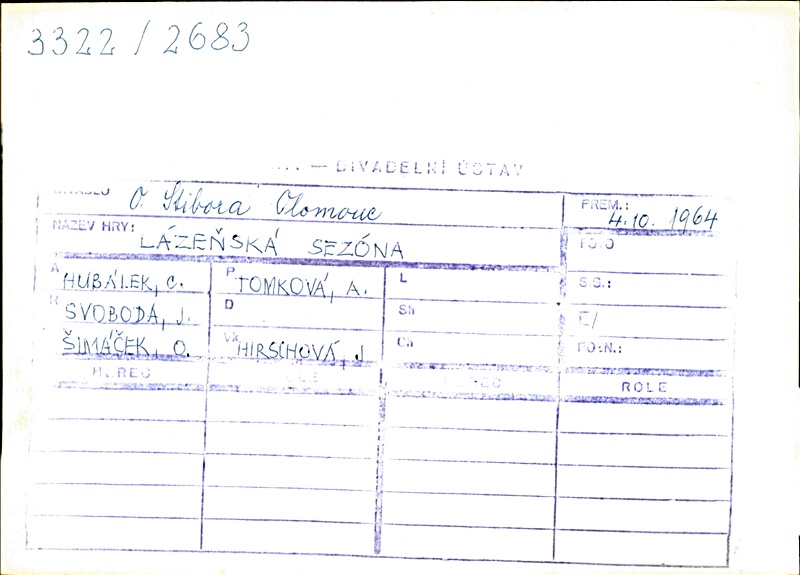 3322 / 2683
— DIVADELNÍ ÚSTAV
DIVADLO O. Stibora Olomouc
PREM.: 4.10. 1964
NÁZEV HRY: LÁZEŇSKÁ SEZÓNA
FOTO
A HUBÁLEK, C. P TOMKOVÁ, A. L S.G.:
R SVOBODA, J. D Sh Č/
ŠIMÁČEK, O. Vk HIRSCHOVÁ, J Ch FO:N.:
HEREC ROLE HEREC ROLE